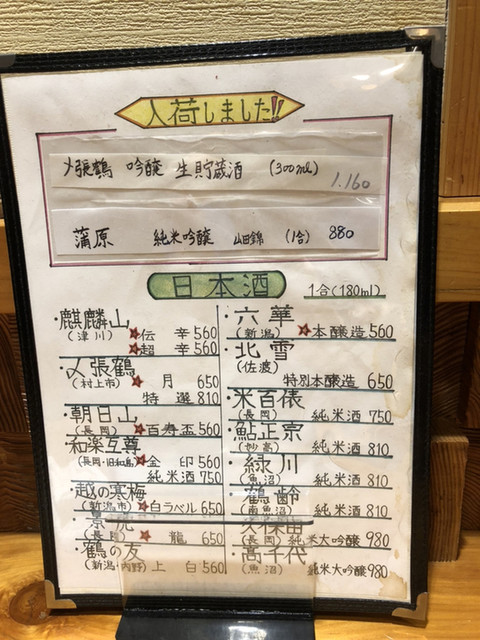 入荷しました!!
〆張鶴 吟醸 生貯蔵酒 (300ml) 1.160
蒲原 純米吟醸 山田錦 (1合) 880
日本酒
1合(180ml)
・麒麟山
(津川) ★伝辛 560
★超辛 560
・〆張鶴
(村上市) ★月 650
特選 810
・朝日山
(長岡) ★百寿盃 560
・和楽互尊
(長岡・旧和島) ★金印 560
純米酒 750
・越の寒梅
(新潟市) ★白ラベル 650
・景虎
(長岡) ★龍 650
・鶴の友
(新潟・内野) 上白 560
・六華
(新潟) ★本醸造 560
・北雪
(佐渡)
特別本醸造 650
・米百俵
(長岡) 純米酒 750
・鮎正宗
(妙高) 純米酒 810
・緑川
(魚沼) 純米酒 810
・鶴齢
(南魚沼) 純米酒 810
・久保田
(長岡) 純米大吟醸 980
・高千代
(魚沼) 純米大吟醸 980